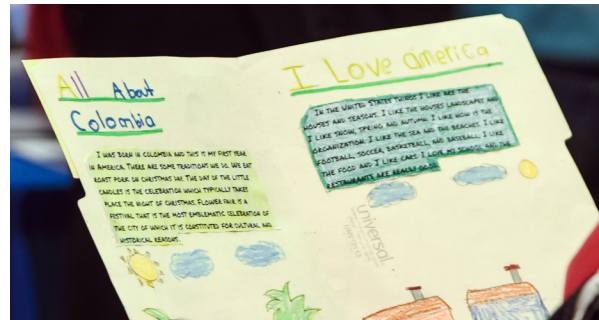 All About
Colombia
I WAS BORN IN COLOMBIA AND THIS IS MY FIRST YEAR
IN AMERICA. THERE ARE SOME TRADITIONS WE DO. WE EAT
ROAST PORK ON CHRISTMAS DAY. THE DAY OF THE LITTLE
CANDLES IS THE CELEBRATION WHICH TYPICALLY TAKES
PLACE THE NIGHT OF CHRISTMAS. FLOWER FAIR IS A
FESTIVAL THAT IS THE MOST EMBLEMATIC CELEBRATION OF
THE CITY OF WHICH IT IS CONSTITUTED FOR CULTURAL AND
HISTORICAL REASONS.
I Love america
IN THE UNITED STATES THINGS I LIKE ARE THE
HOUSES AND SEASONS. I LIKE THE HOUSES LANDSCAPES AND
I LIKE SNOW, SPRING AND AUTUMN. I LIKE HOW IS THE
ORGANIZATION. I LIKE THE SEA AND THE BEACHES. I LIKE
FOOTBALL, SOCCER, BASKETBALL, AND BASEBALL. I LIKE
THE FOOD AND I LIKE CARS. I LOVE MY SCHOOL AND THE
RESTAURANTS ARE REALLY GOOD.
universal